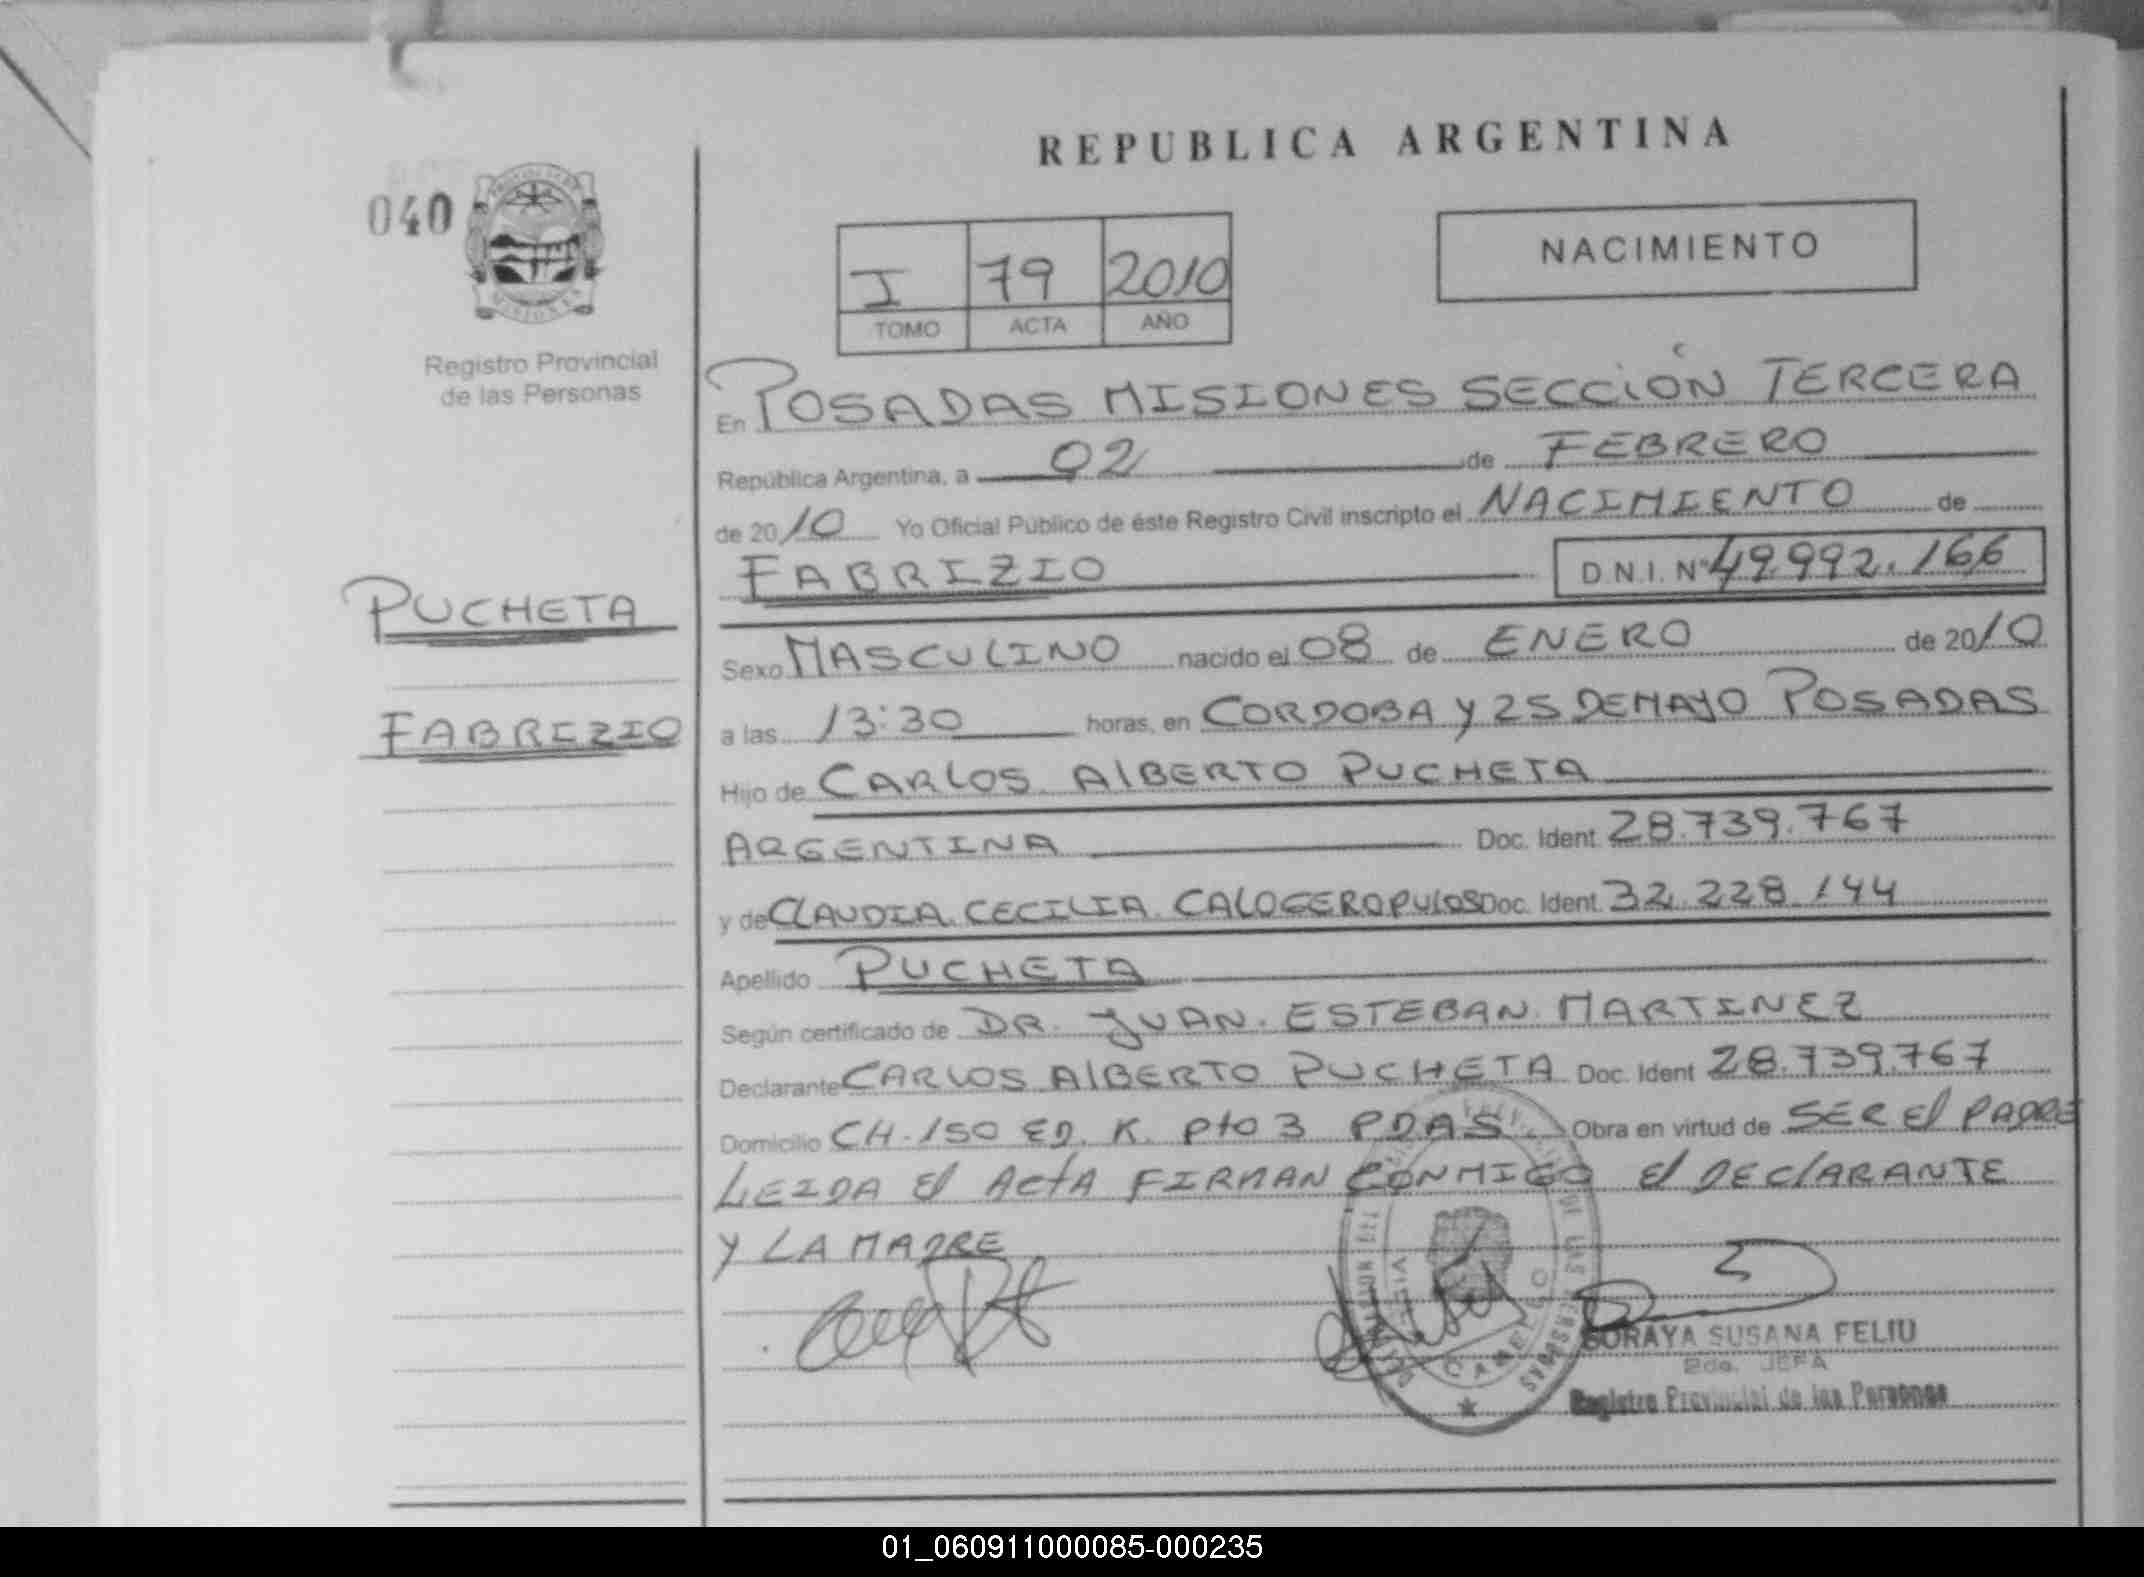 REPUBLICA ARGENTINA
040
I 79 2010
TOMO ACTA AÑO
NACIMIENTO
Registro Provincial
de las Personas
En POSADAS MISIONES SECCIÓN TERCERA
República Argentina, a 02 de FEBRERO
de 2010 Yo Oficial Público de éste Registro Civil inscripto el NACIMIENTO de
FABRIZIO D.N.I. Nº 49.992.166
PUCHETA
FABRIZIO
Sexo MASCULINO nacido el 08 de ENERO de 2010
a las 13:30 horas, en CORDOBA Y 25 DE MAYO POSADAS
Hijo de CARLOS ALBERTO PUCHETA
ARGENTINA Doc. Ident. 28.739.767
y de CLAUDIA CECILIA CALOGEROPULOS Doc. Ident. 32.228.144
Apellido PUCHETA
Según certificado de DR. JUAN ESTEBAN MARTINEZ
Declarante CARLOS ALBERTO PUCHETA Doc. Ident. 28.739.767
Domicilio CH. 150 ED. K. Pto 3 PDAS. Obra en virtud de SER El PADRE
LEIDA El ActA FIRMAN CONMIGO El DEClARANTE
Y LA MADRE
SORAYA SUSANA FELIU
2da. JEFA
Registro Provincial de las Personas
01_060911000085-000235